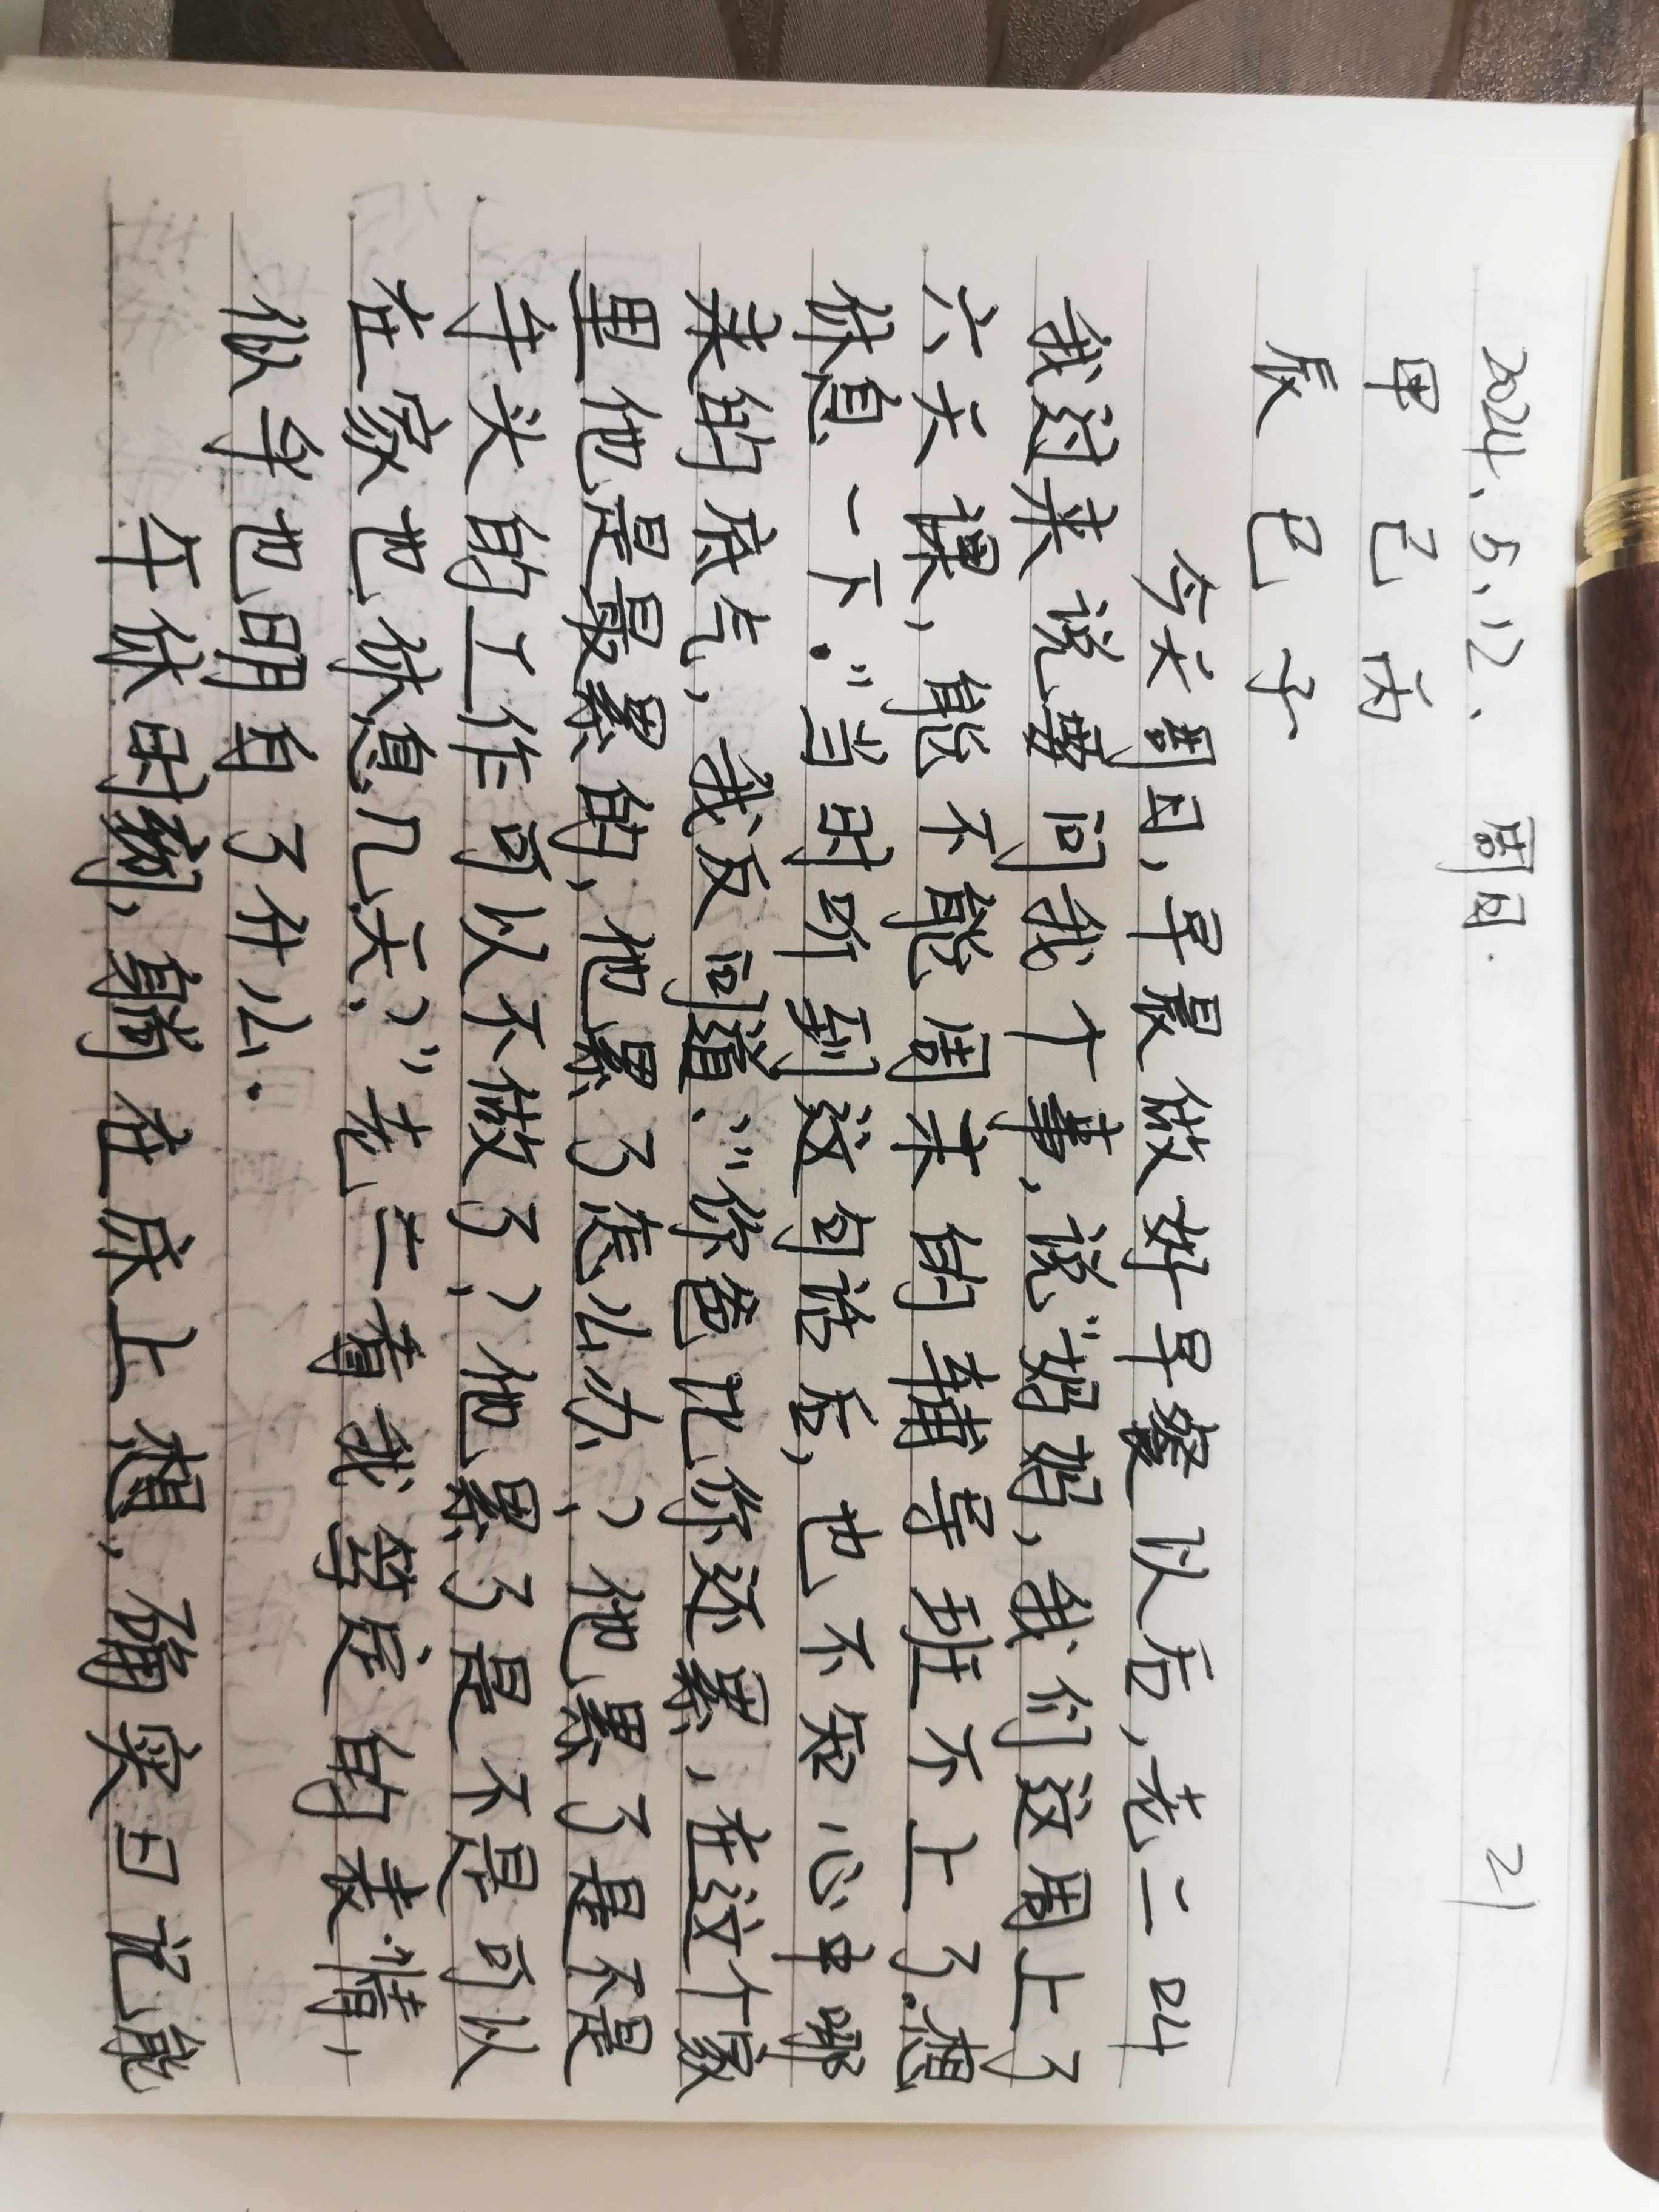 2024、5、12、 周日. 21
甲 己 丙
辰 巳 子
今天周日,早晨做好早餐以后,老二叫
我过来说要问我个事,说“妈妈,我们这周上了
六天课,能不能周末的辅导班不上了.想
休息一下.”当时听到这句话后,也不知心中哪
来的底气,我反问道:“你爸比你还累,在这个家
里他是最累的,他累了怎么办?他累了是不是
手头的工作可以不做了?他累了是不是可以
在家也休息几天?”老二看我笃定的表情,
似乎也明白了什么.
午休时刻,躺在床上想,确实日记能